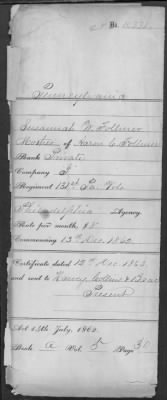 Pennsylvania
Susannah W. Follmer
Mother of Aaron C. Follmer
Rank Private
Company
Regiment 131st Pa. Vols
Philadelphia Agency.
Rate per month, $8
Commencing 13th Dec. 1862
Certificate dated 12th Dec. 1863
and sent to
Present
Act 14th July, 1862.
Book A Vol. 5 Page 35